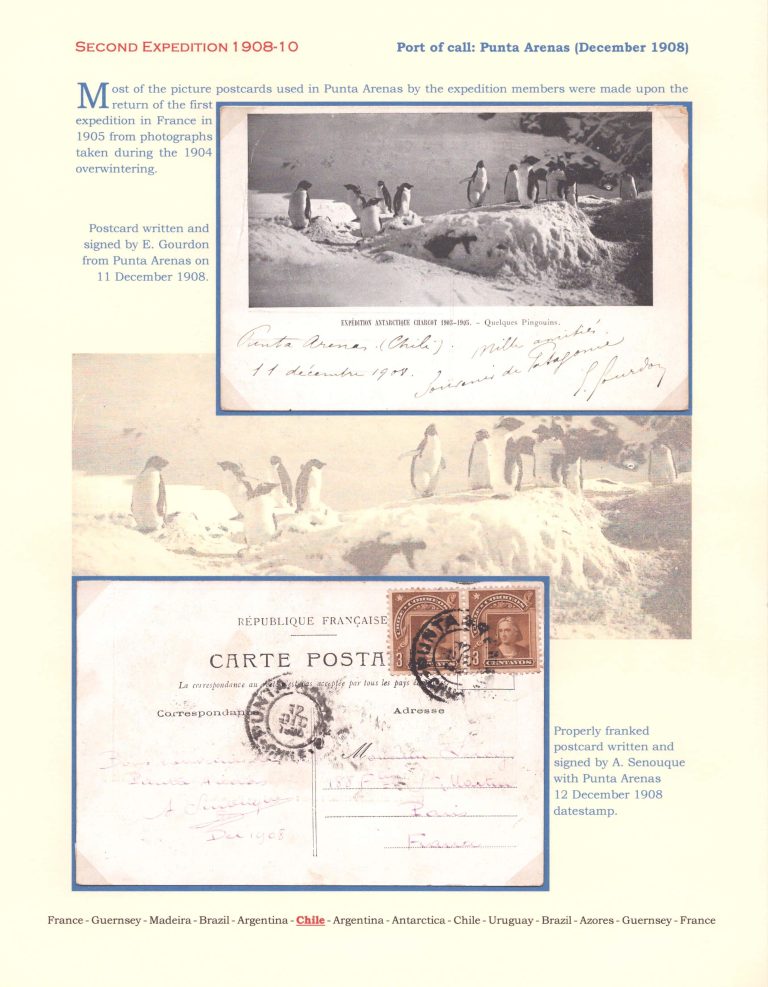 SECOND EXPEDITION 1908-10
Port of call: Punta Arenas (December 1908)
Most of the picture postcards used in Punta Arenas by the expedition members were made upon the
return of the first
expedition in France in
1905 from photographs
taken during the 1904
overwintering.
Postcard written and
signed by E. Gourdon
from Punta Arenas on
11 December 1908.
EXPÉDITION ANTARCTIQUE CHARCOT 1903-1905. - Quelques Pingouins.
Punta Arenas. (Chili). Mille amitiés.
11 décembre 1908. Souvenir de Patagonie
E. Gourdon
RÉPUBLIQUE FRANÇAISE
CARTE POSTA
La correspondance au acceptée par tous les pays
CENTAVOS
3 3
PUNTA
12
DIC
CHILE
PUNTA
Correspondan
Adresse
Monsieur
Punta Arenas
St Martin
A Senouque
Paris
Dec 1908
France
Properly franked
postcard written and
signed by A. Senouque
with Punta Arenas
12 December 1908
datestamp.
France - Guernsey - Madeira - Brazil - Argentina - Chile - Argentina - Antarctica - Chile - Uruguay - Brazil - Azores - Guernsey - France